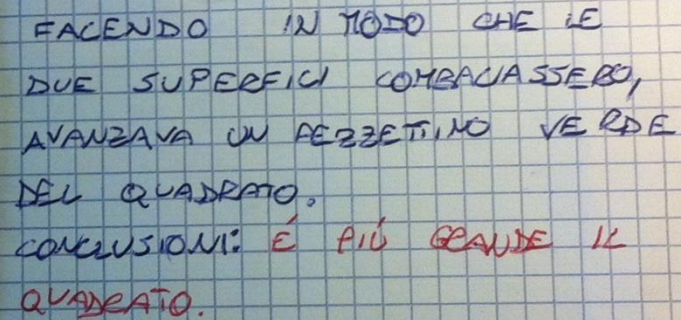 FACENDO IN MODO CHE LE
DUE SUPERFICI COMBACIASSERO,
AVANZAVA UN PEZZETTINO VERDE
DEL QUADRATO.
CONCLUSIONI: É PIÚ GRANDE IL
QUADRATO.